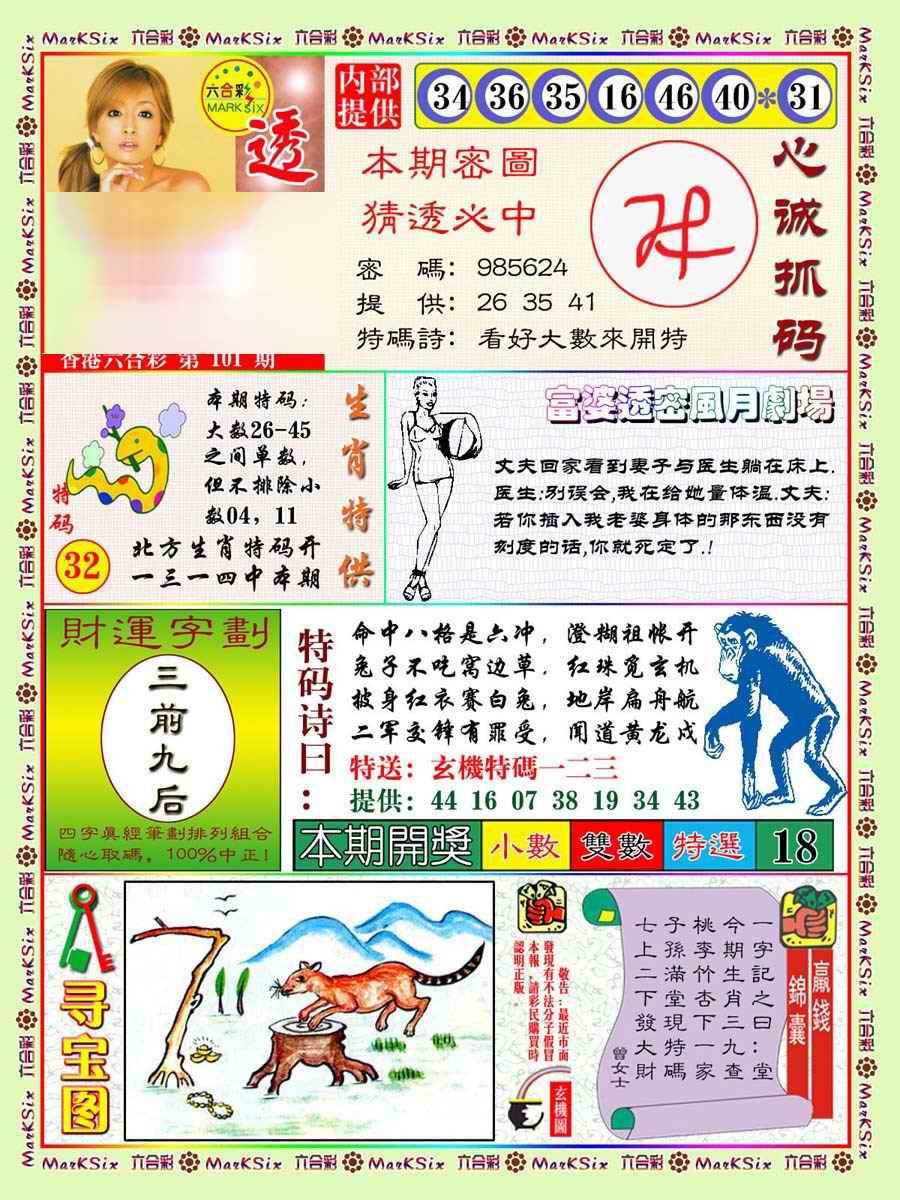 MarKSix 六合彩 MarKSix 六合彩 MarKSix 六合彩 MarKSix 六合彩 MarKSix 六合彩
六合彩
MARK SIX
透
内部
提供
34 36 35 16 46 40 * 31
本期密圖
猜透必中
密 碼: 985624
提 供: 26 35 41
特碼詩: 看好大數來開特
心诚抓码
香港六合彩 第 101 期
本期特码:
大数26-45
之间单数,
但不排除小
数04, 11
北方生肖特码开
一三一四中本期
特码
32
生肖特供
富婆透密風月劇場
丈夫回家看到妻子与医生躺在床上.
医生:别误会,我在给她量体温.丈夫:
若你插入我老婆身体的那东西没有
刻度的话,你就死定了.!
財運字劃
三前九后
四字真經筆劃排列組合
隨心取碼, 100%中正!
特码诗曰:
命中八格是六冲, 澄糊祖帐开
兔子不吃窝边草, 红珠觅玄机
披身红衣赛白兔, 地岸扁舟航
二军交锋有罪受, 闻道黄龙戍
特送: 玄機特碼一二三
提供: 44 16 07 38 19 34 43
本期開獎 小數 雙數 特選 18
寻宝图
敬告:最近市面
發現有不法分子假冒
本報,請彩民購買時
認明正版。
玄機圖
一字記之曰:堂
今期生肖三九查
桃李竹杏下一家
子孫滿堂現特碼
七上二下發大財
曾女士
贏錢
錦囊
MarKSix 六合彩 MarKSix 六合彩 MarKSix 六合彩 MarKSix 六合彩 MarKSix 六合彩